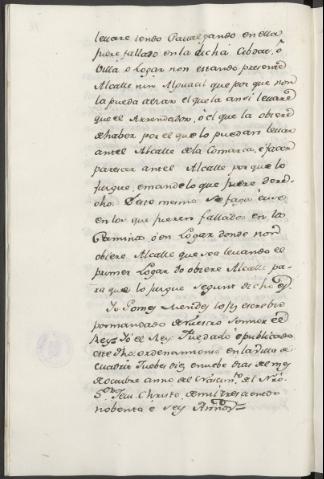 levare iendo Cavalgando en ella
fuere fallado en la dicha Cibdat, o
Villa o Logar non estando presente
Alcalle nin Alguacil que por que non
la pueda alzar el que la ansi levare
que el Arrendador, o el que la obiere
de haber por el que lo puedan levar
ante el Alcalle de la Comarca, e facer
parescer ante el Alcalle por que lo
jusgue, e mande lo que fuere dere
cho. E eso mesmo se faga
en los que fueren fallados en los
Caminos ó en Logar donde non
obiere Alcalle que sea levando el
primer Logar do obiere Alcalle pa-
ra que lo jusgue segunt dicho es.
Yo Gomes Mendes lo fis escrebir
por mandado de Nuestro Sennor el
Rey. Yo el Rey. Fue dado e publicado
este dho. ordenamiento en la Villa de
Cuadra Juebes dies e nuebe dias del mes
de Octubre anno del Nascim.to del Nro.
S.or Jesu Christo de mil e trescientos e
nobenta e seys Annos =